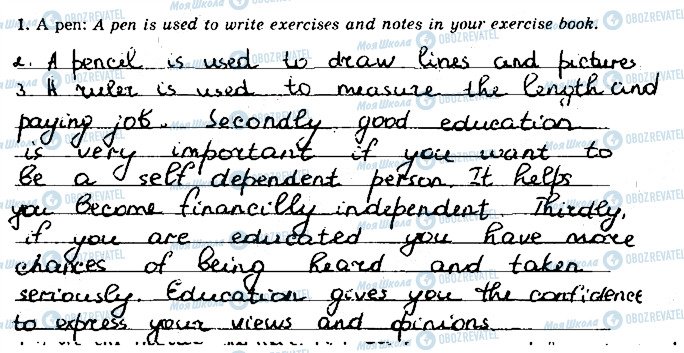 1. A pen: A pen is used to write exercises and notes in your exercise book.
2. A pencil is used to draw lines and pictures
3. A ruler is used to measure the length and
paying job. Secondly good education
is very important if you want to
be a self dependent person. It helps
you become financilly independent. Thirdly,
if you are educated you have more
chances of being heard and taken
seriously. Education gives you the confidence
to express your views and opinions.